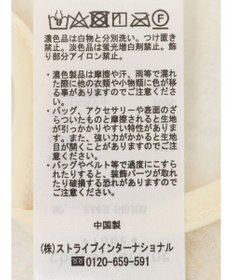 濃色品は白物と分別洗い。つけ置き
禁止。淡色品は蛍光増白剤禁止。飾
り部分アイロン禁止。
・濃色製品は摩擦や汗、雨等で濡れ
た際に他の衣類や小物類に色が移
る事がありますのでご注意くださ
い。
・バッグ、アクセサリーや表面のざ
らついたものと摩擦しますと生地
が引っかかりやすい特性がありま
す。また、強い力がかかると生地
目が開くことがありますのでご注
意ください。
・バッグやベルト等で過度にこすら
れますと、装飾パーツが取れたり
破損する恐れがありますのでご注
意ください。
中国製
(株)ストライプインターナショナル
☎0120-659-591